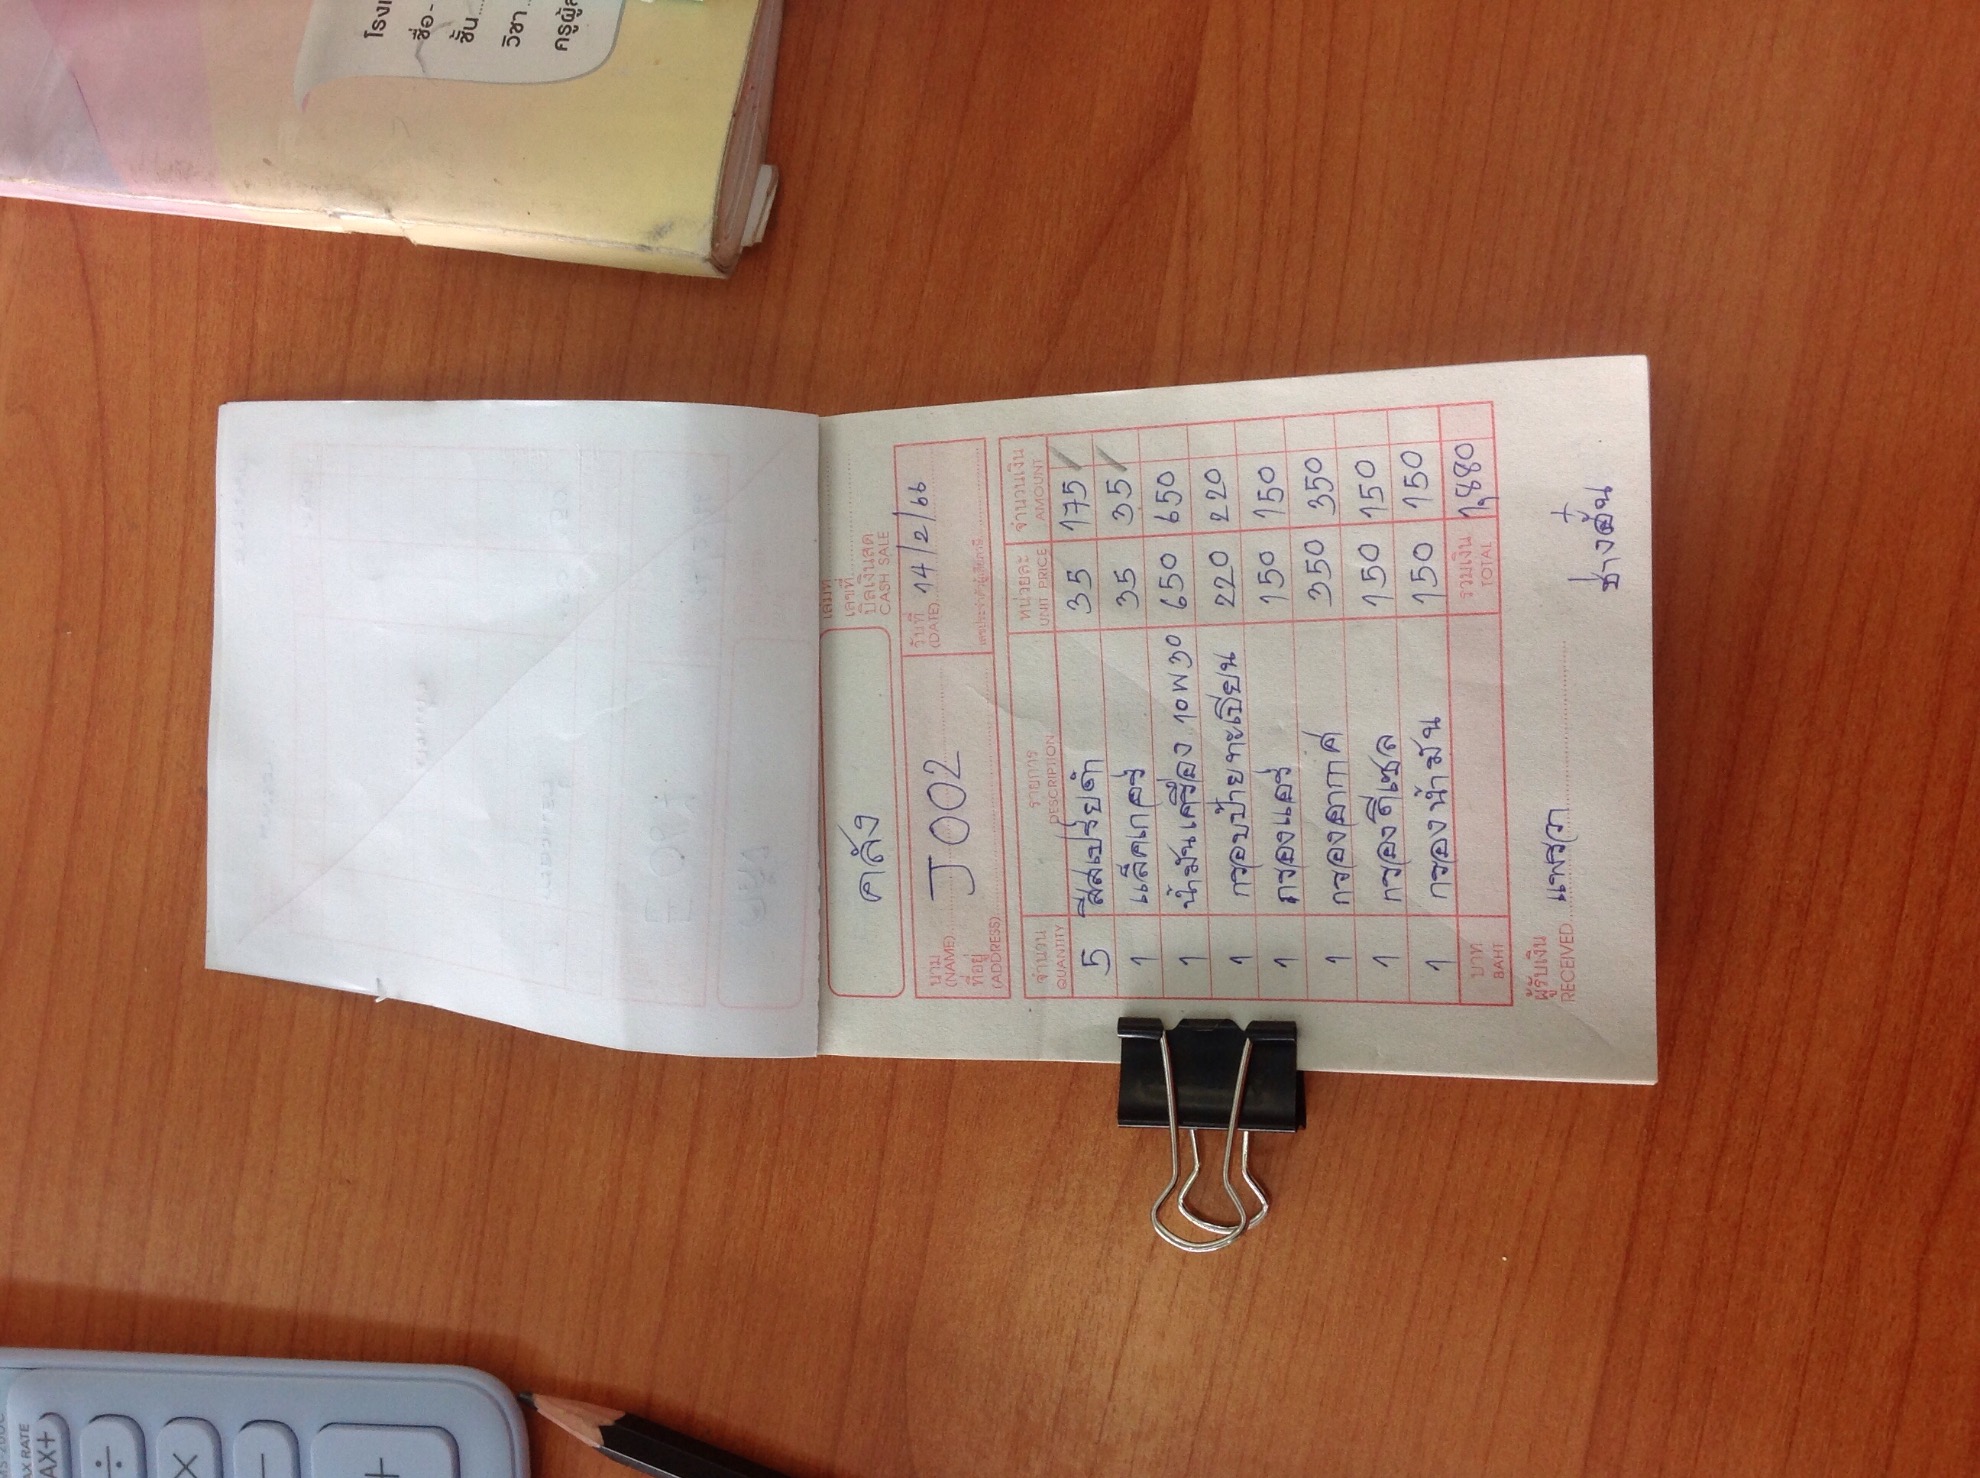 โรงเ
ชื่อ-
ชั้น
วิชา
ครูผู้ส
คลัง
เล่มที่
เลขที่
บิลเงินสด
CASH SALE
นาม
(NAME) J002
วันที่
(DATE) 14/2/66
ที่อยู่
(ADDRESS)
เลขประจำตัวผู้เสียภาษี
จำนวน รายการ หน่วยละ จำนวนเงิน
QUANTITY DESCRIPTION UNIT PRICE AMOUNT
5 สีสเปรย์ดำ 35 175
1 แล็คเกอร์ 35 35
1 น้ำมันเครื่อง 10W30 650 650
1 กรอบป้ายทะเบียน 220 220
1 กรองแอร์ 150 150
1 กรองอากาศ 350 350
1 กรองดีเซล 150 150
1 กรองน้ำมัน 150 150
บาท รวมเงิน 1,880
BAHT TOTAL
ผู้รับเงิน
RECEIVED แพรวา
AX RATE
AX+
÷
×
−
+